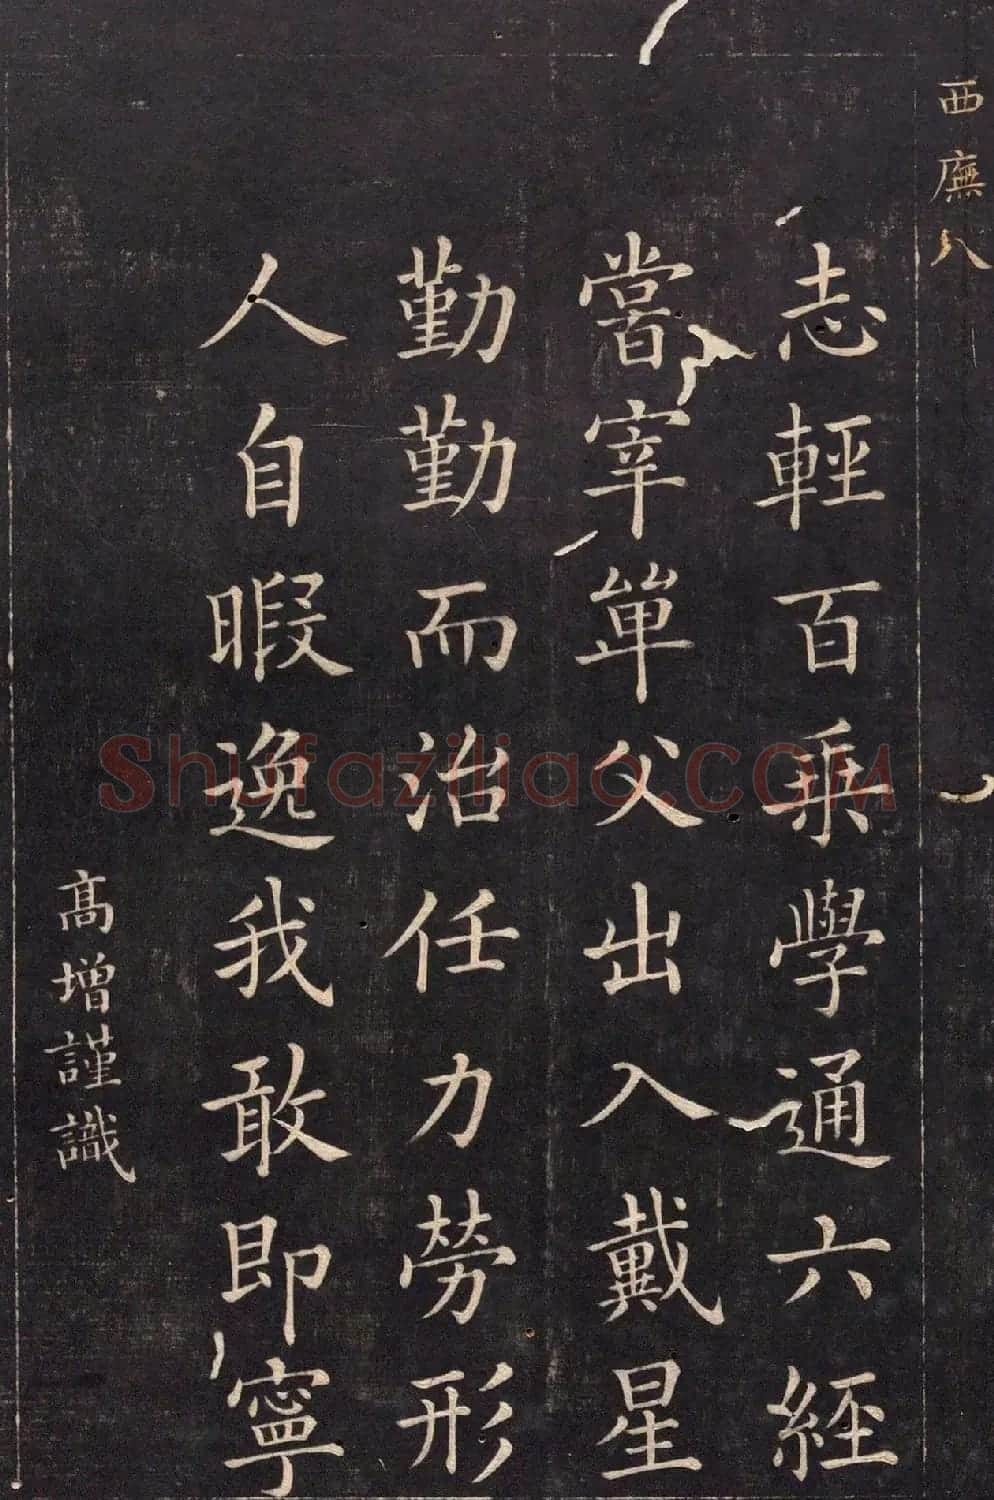 西廡八
志輕百乘學通六經
嘗宰單父出入戴星
勤勤而治任力勞形
人自暇逸我敢即寧
高增謹識
Shufaziliao.COM